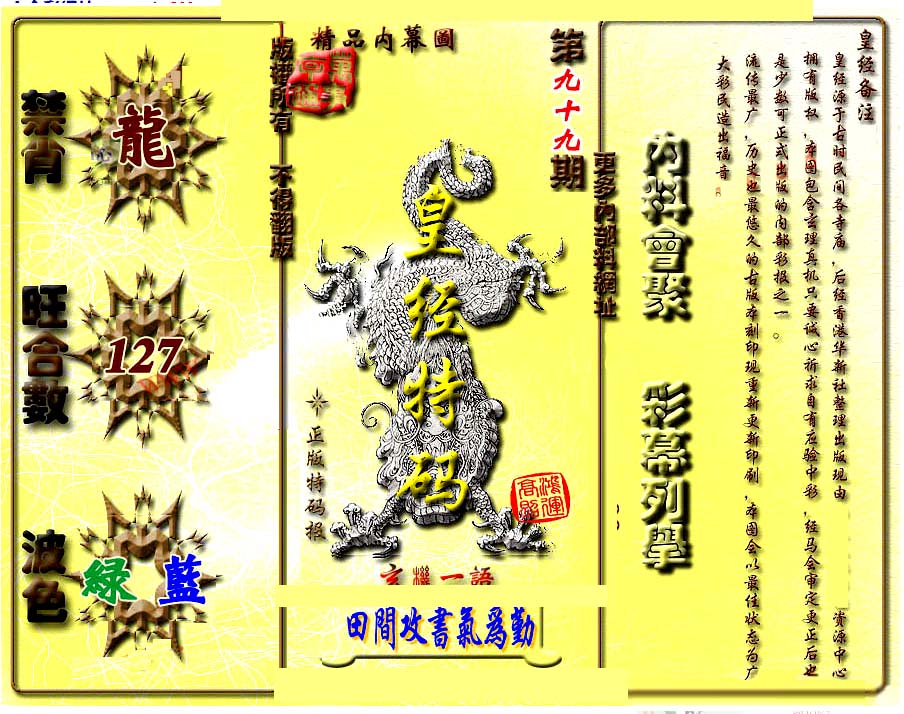 精品內幕圖
第九十九期
版權所有 不得翻版
更多內部料網址
禁肖
龍
旺合數
127
波色
綠 藍
皇经特码
正版特码报
鴻運高照
玄機一語
田間攻書氣爲勤
內料會聚
彩幕列舉
皇经备注
皇经源于古时民间各寺庙，后经香港华新社整理出版现由 资源中心
拥有版权，本图包含玄理真机只要诚心祈求自有应验中彩，经马会审定更正后也
是少数可正式出版的内部彩报之一。
流传最广，历史也最悠久的古版本刻印现重新更新印刷，本图会以最佳状态为广
大彩民造出福音